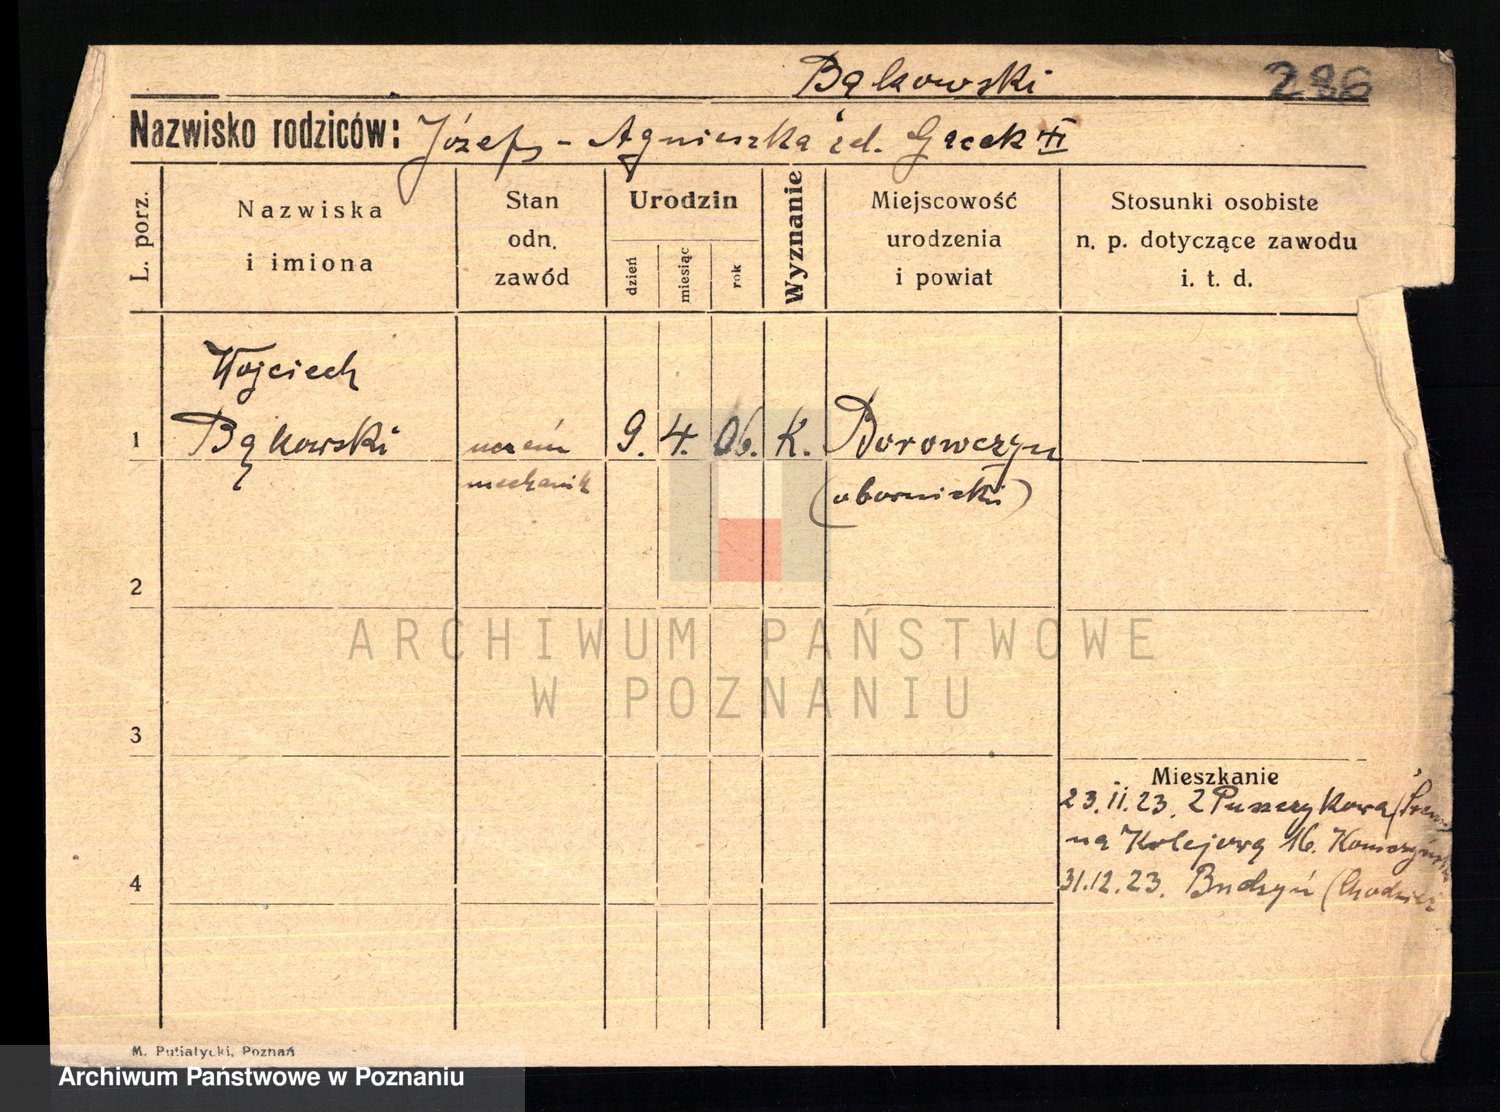 Bąkowski 286
Nazwisko rodziców: Józef - Agnieszka zd. Gącek
L. porz.
Nazwiska
i imiona
Stan
odn.
zawód
Urodzin
dzień
miesiąc
rok
Wyznanie
Miejscowość
urodzenia
i powiat
Stosunki osobiste
n. p. dotyczące zawodu
i. t. d.
Wojciech
1 Bąkowski uczeń 9. 4. 06. K. Borowczyn
mechanik (obornicki)
2
ARCHIWUM PAŃSTWOWE
W POZNANIU
3
Mieszkanie
23.11.23. Z Puszczykowa (Śrem
na Kolejową 16.
4 31.12.23. Budzyń (Chodzież
M. Putiatycki, Poznań
Archiwum Państwowe w Poznaniu